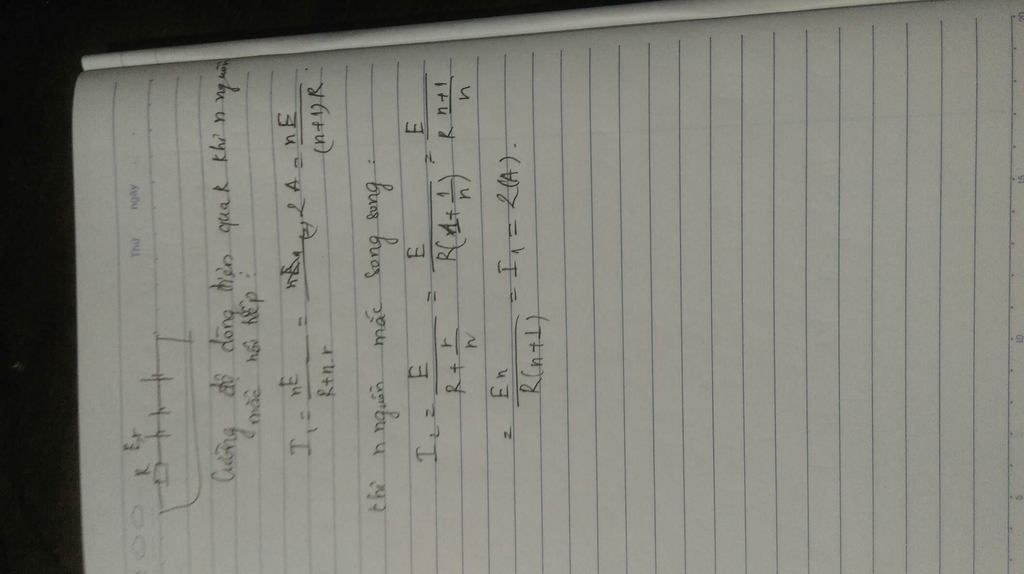 Thứ ngày
R E,r
Cường độ dòng điện qua R khi n nguồn
mắc nối tiếp:
I₁ = nE/(R+n.r) = (=) 2A = nE/((n+1)R).
thì n nguồn mắc song song:
I₂ = E/(R + r/n) = E/(R(1+1/n)) = E/(R (n+1)/n)
= En/(R(n+1)) = I₁ = 2(A).
5
10
15
20